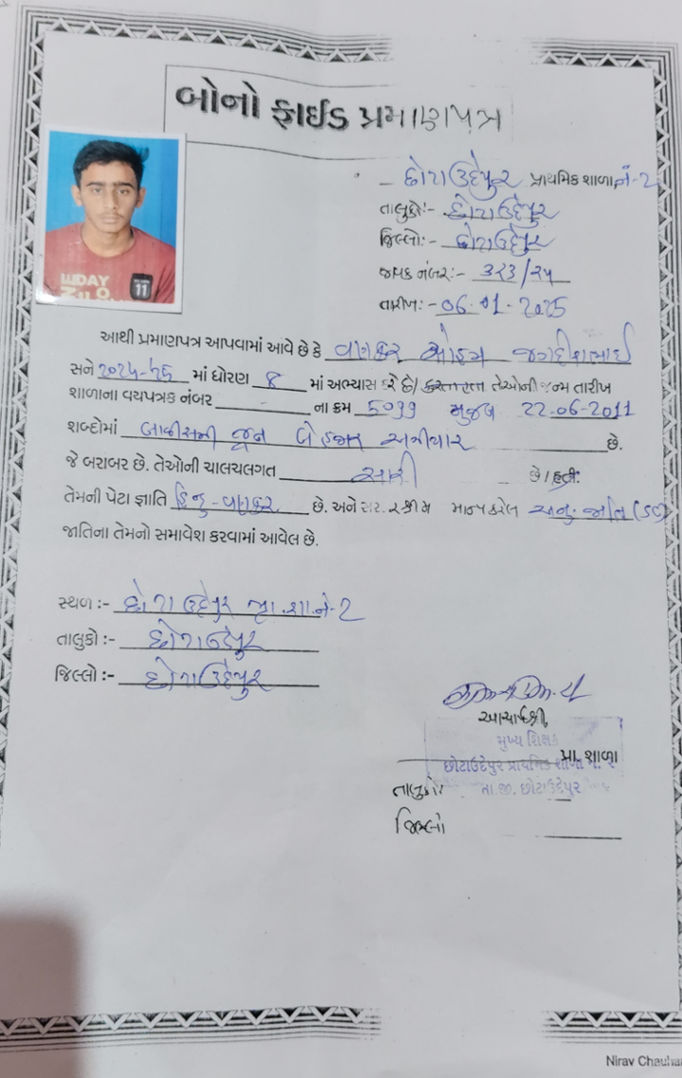 બોનો ફાઈડ પ્રમાણપત્ર
છોટાઉદેપુર પ્રાથમિક શાળા નં-2
તાલુકો:- છોટાઉદેપુર
જિલ્લો:- છોટાઉદેપુર
જાવક નંબર:- ૩૨૩/૨૫
તારીખ:- 06-01-2025
આથી પ્રમાણપત્ર આપવામાં આવે છે કે વણકર જગદીશભાઈ
સને ૨૦૨૫-૨૬ માં ધોરણ ૪ માં અભ્યાસ કરે છે/ કરતા હતા તેઓની જન્મ તારીખ
શાળાના વયપત્રક નંબર ના ક્રમ 5099 મુજબ 22-06-2011
શબ્દોમાં બાવીસમી જૂન બે હજાર અગીયાર છે.
જે બરાબર છે. તેઓની ચાલચલગત સારી છે/હતી.
તેમની પેટા જ્ઞાતિ હિન્દુ-વણકર છે. અને સર. ૨ શ્રી એ માન્ય કરેલ અનુ. જાતિ (SC)
જાતિના તેમનો સમાવેશ કરવામાં આવેલ છે.
સ્થળ :- છોટાઉદેપુર પ્રા.શા.નં-2
તાલુકો :- છોટાઉદેપુર
જિલ્લો :- છોટાઉદેપુર
આચાર્યશ્રી
મુખ્ય શિક્ષક
પ્રા. શાળા
છોટાઉદેપુર પ્રાથમિક શાળા નં. ૨
તાલુકો
તા.જી. છોટાઉદેપુર
જિલ્લો
11
Nirav Chauhan